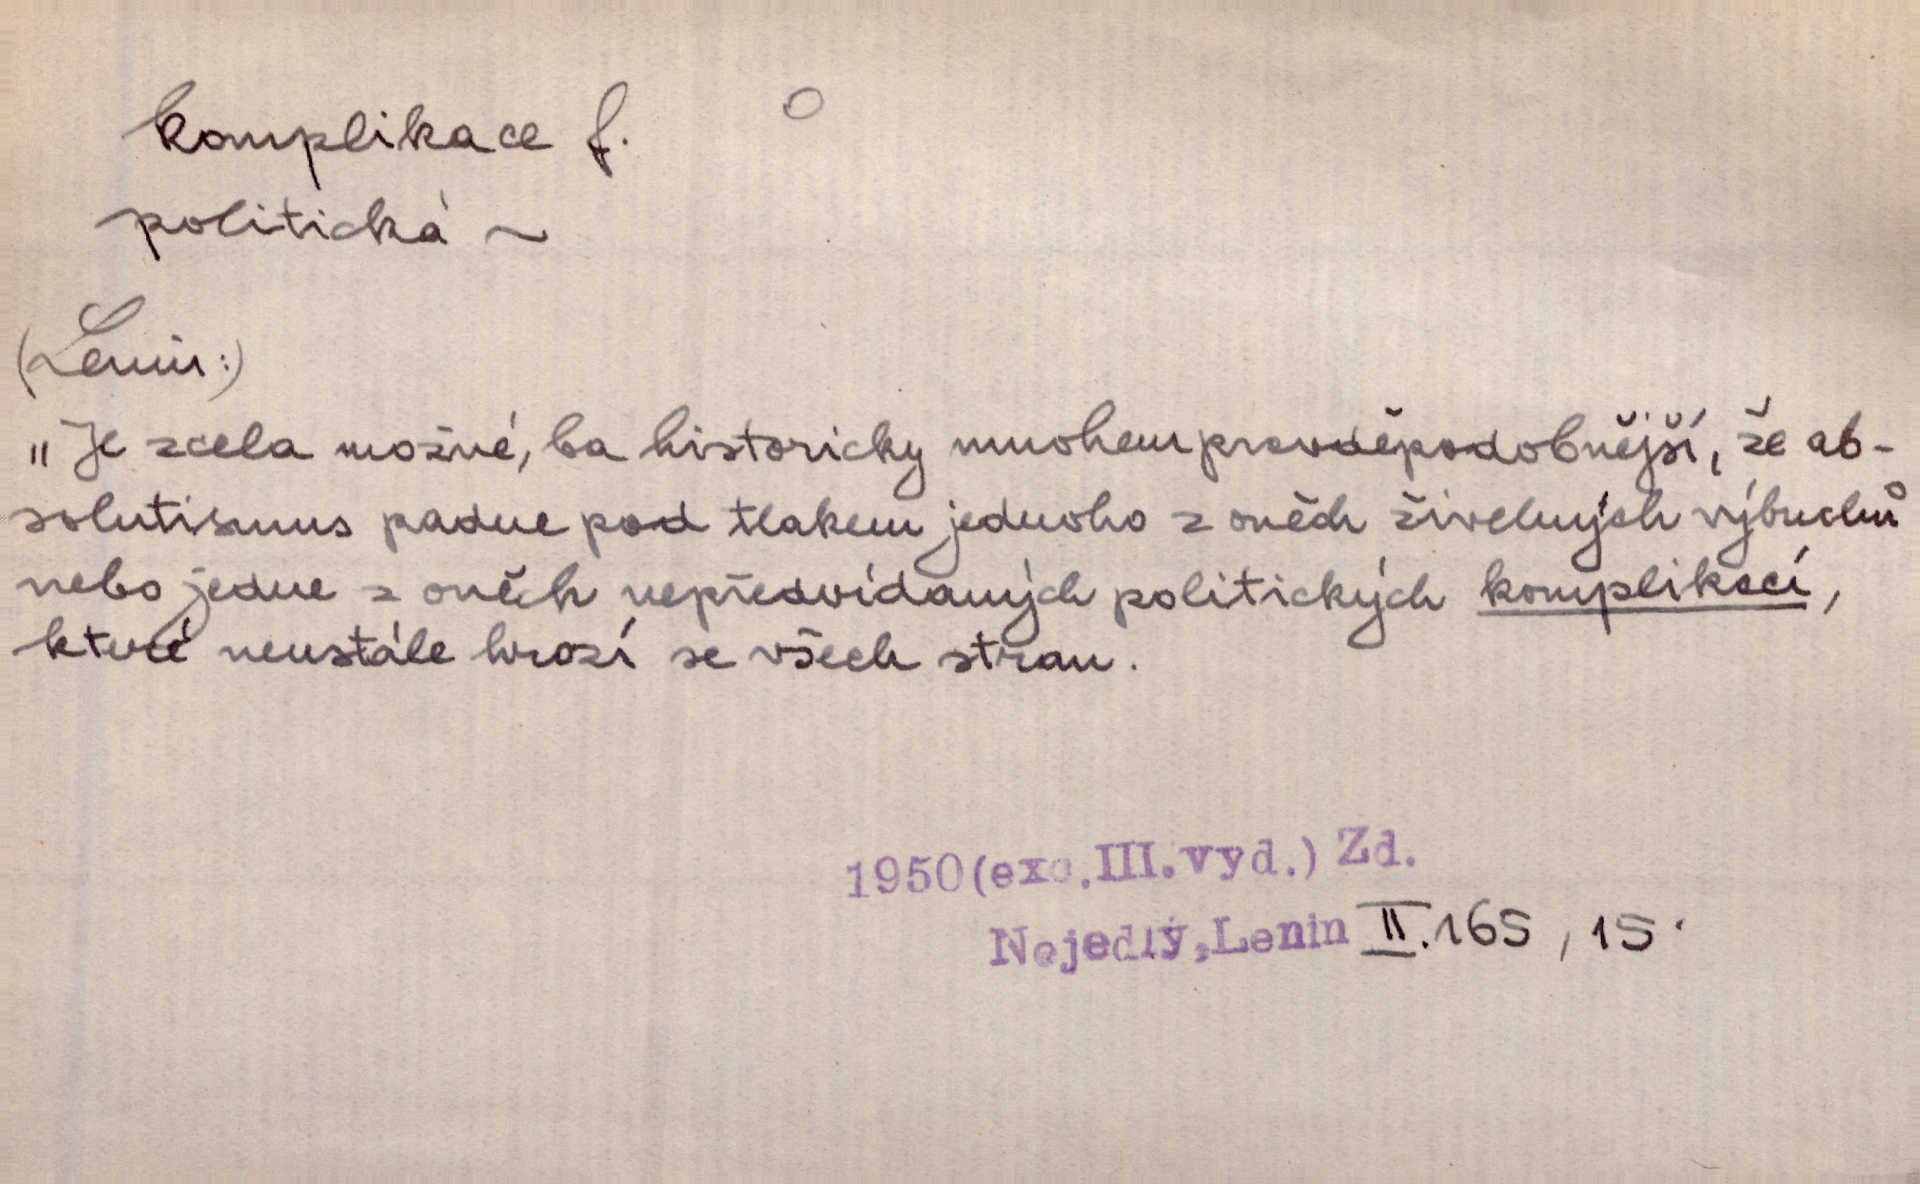 komplikace f. O
politická ~
(Lenin:)
"Je zcela možné, ba historicky mnohem pravděpodobnější, že ab-
solutismus padne pod tlakem jednoho z oněch živelných výbuchů
nebo jedne z oněch nepředvídaných politických komplikací,
které neustále hrozí se všech stran.
1950 (exc. III. vyd.) Zd.
Nejedlý, Lenin II. 165, 15.